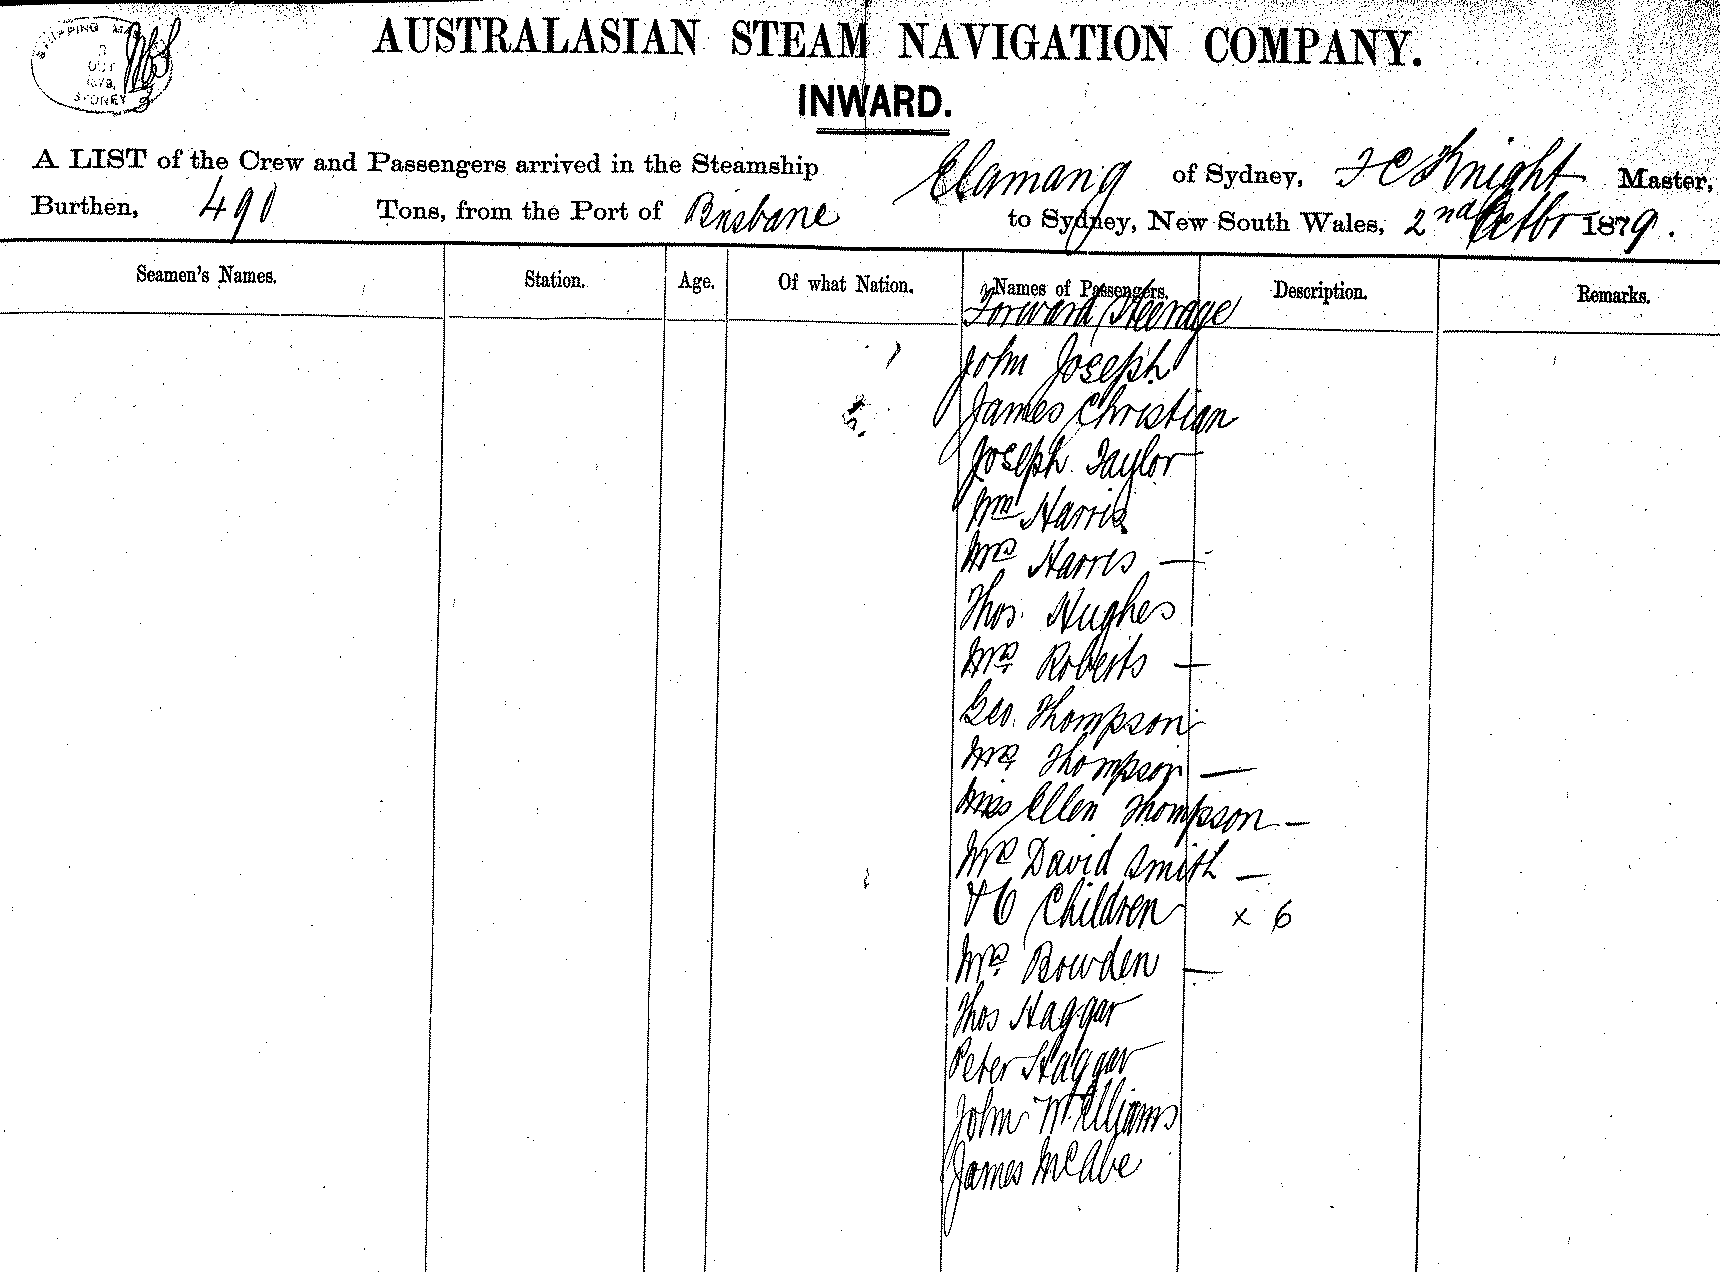 SHIPPING MA
3
OCT
1879.
SYDNEY
AUSTRALASIAN STEAM NAVIGATION COMPANY.
INWARD.
A LIST of the Crew and Passengers arrived in the Steamship Elamang of Sydney, F C Knight Master,
Burthen, 490 Tons, from the Port of Brisbane to Sydney, New South Wales, 2nd Octbr 1879.
Seamen's Names. Station. Age. Of what Nation. Names of Passengers. Description. Remarks.
Forward Steerage
John Joseph
James Christian
Joseph Taylor
Wm Harris
Mrs Harris —
Thos. Hughes
Mrs Roberts —
Geo. Thompson
Mrs Thompson —
Miss Ellen Thompson —
Mrs David Smith —
& 6 Children x 6
Mrs Bowden —
Thos Haggar
Peter Haggar
John Williams
James McAbe